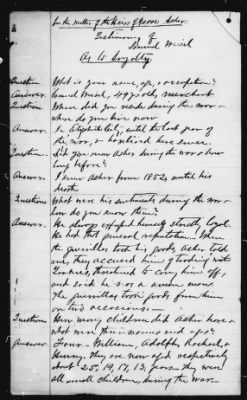 In the matter of the Heirs of Jesse Asher.
Testimony of
Samuel Weil
As to Loyalty.
Question. What is your name, age, & occupation?
Answer. Samuel Weil, 49 yrs old, merchant
Question. Where did you reside during the war &
where do you live now
Answer. In City, until the last year of
the war, & continued here since.
Question. Did you know Asher during the war & how
long before?
Answer. I knew Asher from 1852, until his
death
Question. What were his sentiments during the war &
how do you know them?
Answer. He always expressed himself strictly loyal.
He had that general reputation. When
the guerrillas took his goods, Asher told
me, they accused him of trading with
Yankees, threatened to carry him off,
and said he was a union man.
The guerrillas took goods from him
on two occasions.—
Question. How many children did Asher have &
what were their names and ages?
Answer. Four. William, Adolph, Rachael, &
Henry. They are now aged respectively
about 25, 19, 17, 13, years. They were
all small children, during the war.